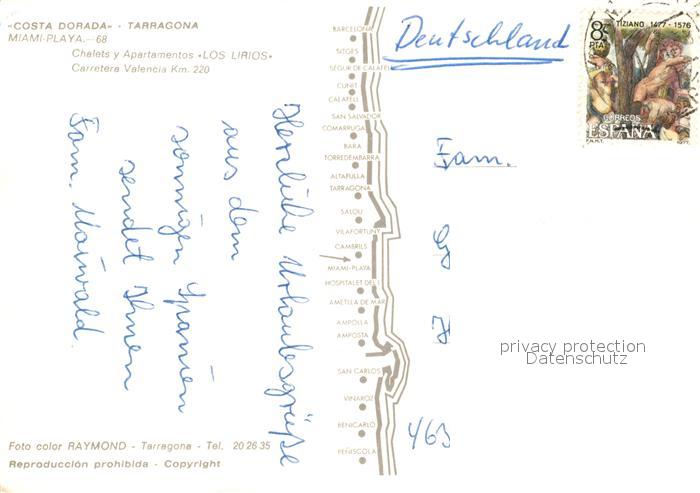 «COSTA DORADA» - TARRAGONA
MIAMI-PLAYA.—68
Chalets y Apartamentos «LOS LIRIOS»
Carretera Valencia Km. 220
Herzliche Urlaubsgrüße
aus dem
sonnigen Spanien
sendet Ihnen
Fam. Maiwald.
Foto color RAYMOND - Tarragona - Tel. 20 26 35
Reproducción prohibida - Copyright
BARCELONA
SITGES
SEGUR DE CALAFELL
CUNIT
CALAFELL
SAN SALVADOR
COMARRUGA
BARA
TORREDEMBARRA
ALTAFULLA
TARRAGONA
SALOU
VILAFORTUNY
CAMBRILS
MIAMI-PLAYA
HOSPITALET DEL I.
AMETLLA DE MAR
AMPOLLA
AMPOSTA
SAN CARLOS
VINAROZ
BENICARLO
PEÑISCOLA
Deutschland
TIZIANO 1477 - 1576
8 PTA
CORREOS
ESPAÑA
F.N.M.T.
Fam.
463
privacy protection
Datenschutz